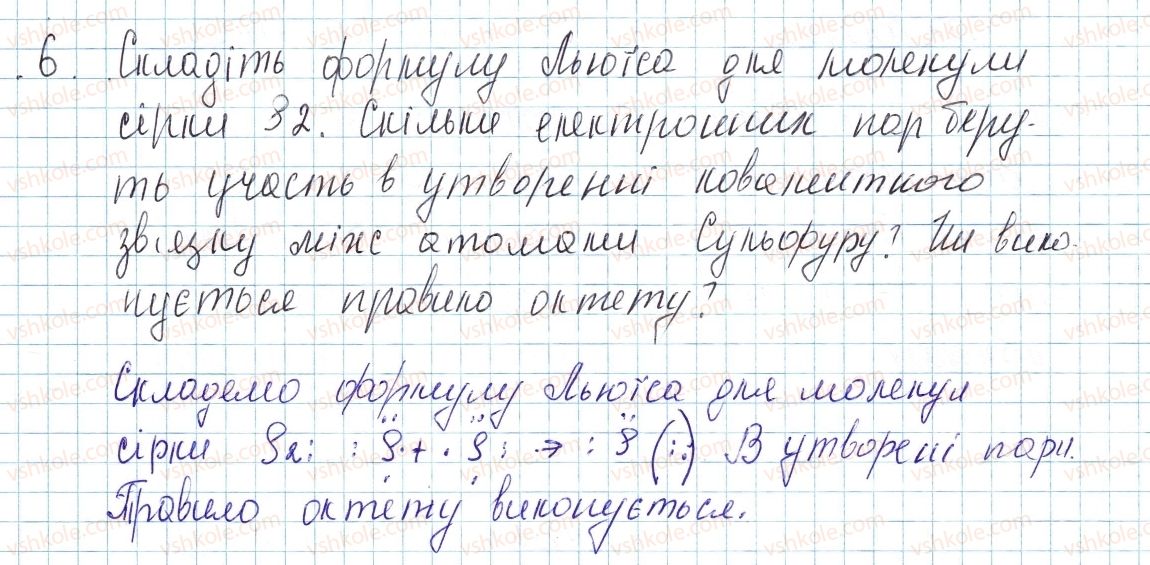 6. Складіть формулу Льюїса для молекули
сірки S2. Скільки електронних пар беру-
ть участь в утворенні ковалентного
зв'язку між атомами Сульфуру? Чи вико-
нується правило октету?
Складемо формулу Льюїса для молекул
сірки S2: :S· + ·S: → :S (::) В утворені пари.
Правило октету виконується.